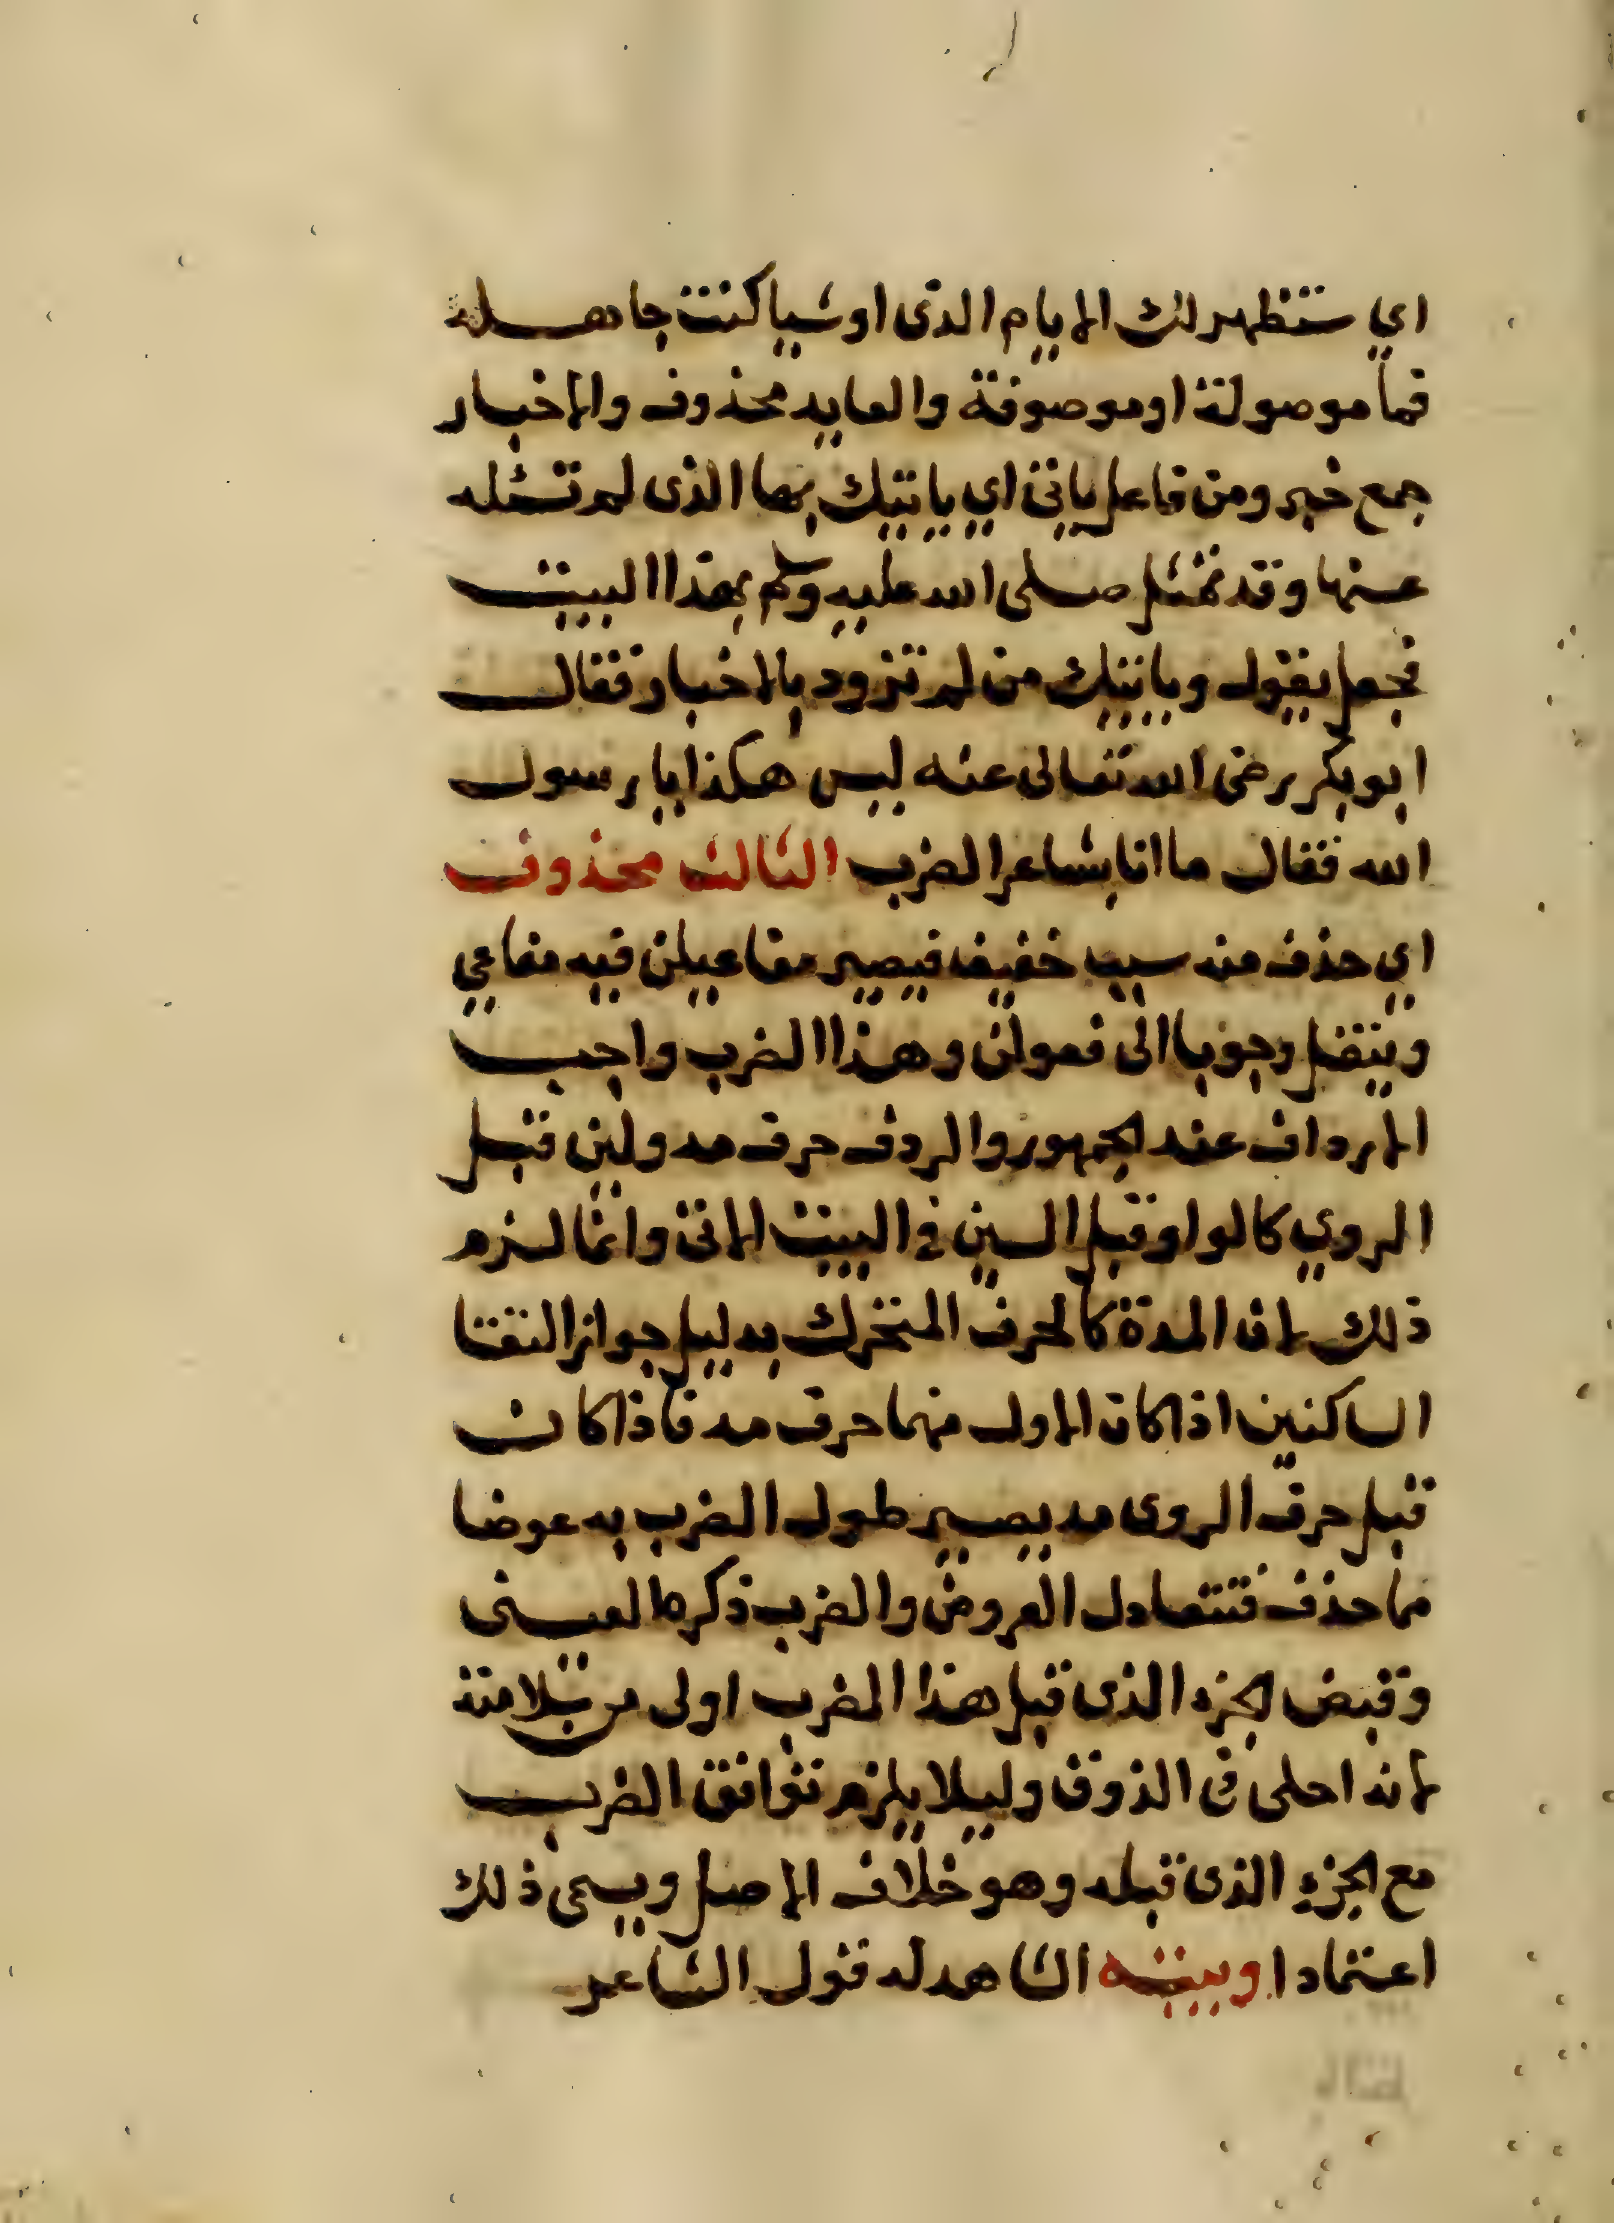 اي ستظهر لك الايام الذى او شيا كنت جاهله
فما موصولة او موصوفة والعايد محذوف والاخبار
جمع خبر ومن فاعل ياتى اي ياتيك بها الذى لم تسئله
عنها وقد تمثل صلى الله عليه وسلم بهذا البيت
فجعل يقول وياتيك من لم تزود بالاخبار فقال
ابو بكر رضى الله تعالى عنه ليس هكذا يا رسول
الله فقال ما انا بشاعر الضرب الثالث محذوف
اي حذف منه سبب خفيف فيصير مفاعيلن فيه مفاعي
وينتقل وجوبا الى فعولن وهذا الضرب واجب
الارداف عند الجمهور والردف حرف مد ولين قبل
الروي كالواو قبل السين في البيت الاتى وانما لزم
ذلك لان المدة كالحرف المتحرك بدليل جواز التقا
الساكنين اذا كان الاول منهما حرف مد فاذا كان
قبل حرف الروى مد يصير طول الضرب به عوضا
مما حذف فتتعادل العروض والضرب ذكره العينى
وقبض الجزء الذى قبل هذا الضرب اولى من سلامته
لانه احلى فى الذوق وليلا يلزم توافق الضرب
مع الجزء الذى قبله وهو خلاف الاصل ويسمى ذلك
اعتمادا وبيته الشاهد له قول الشاعر